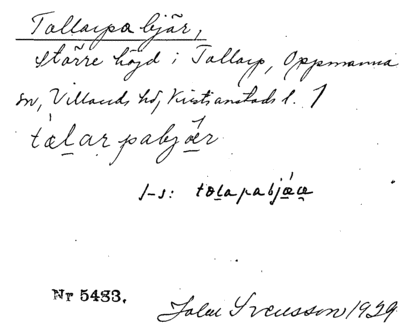 Tollarpa bjär,
större höjd i Tollarp, Oppmanna
sn, Villands hd, Kristianstads l. 1
tɷlar pabjǽr
1-s: tɷlapabjǽɷ
Nr 5483.
John Svensson 1929